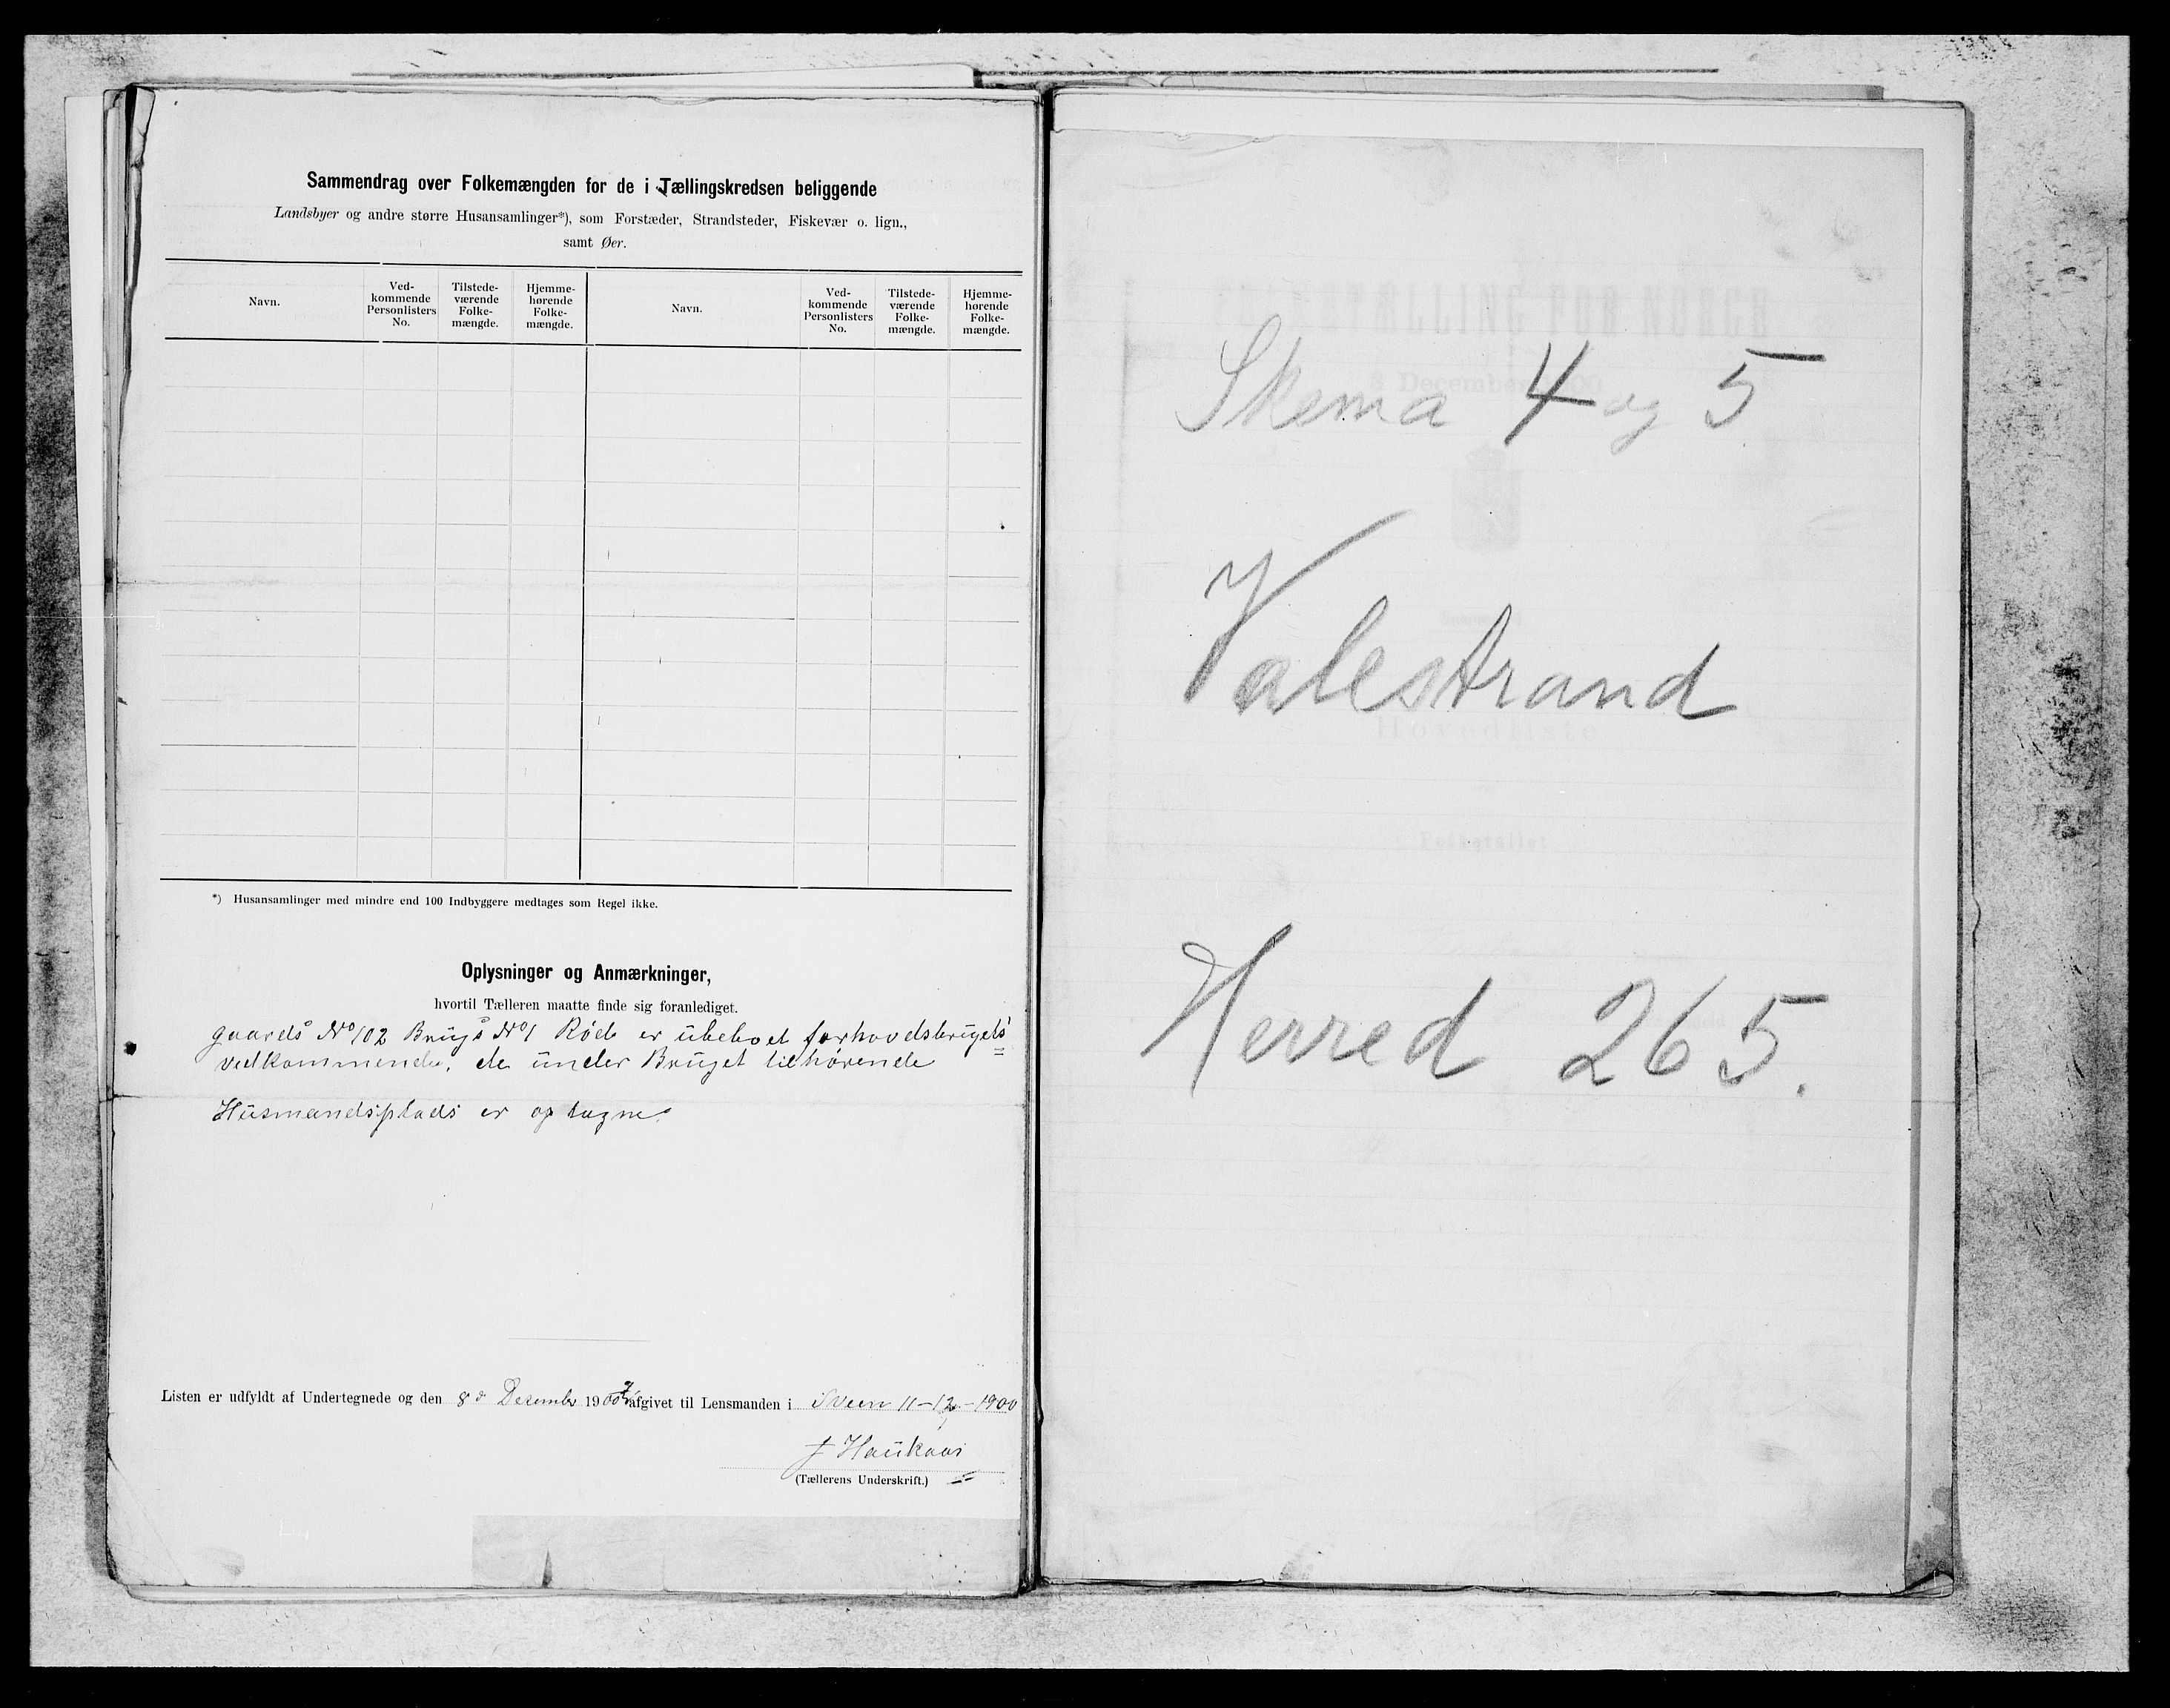 Sammendrag over Folkemængden for de i Tællingskredsen beliggende
Landsbyer og andre større Husansamlinger*), som Forstæder, Strandsteder, Fiskevær o. lign.,
samt Øer.
Navn.
Ved-
kommende
Personlisters
No.
Tilstede-
værende
Folke-
mængde.
Hjemme-
hørende
Folke-
mængde.
Navn.
Ved-
kommende
Personlisters
No.
Tilstede-
værende
Folke-
mængde.
Hjemme-
hørende
Folke-
mængde.
*) Husansamlinger med mindre end 100 Indbyggere medtages som Regel ikke.
Oplysninger og Anmærkninger,
hvortil Tælleren maatte finde sig foranlediget.
Gaards No 102 Brugs No 1 Röd er ubeboet for hovedsbrugets
vedkommende, de under Bruget tilhørende
Husmandsplads er optagne.
Listen er udfyldt af Undertegnede og den 8 Desember 1900 afgivet til Lensmanden i Sveen 11-12-1900
J Haukaas
(Tællerens Underskrift.)
Skema 4 og 5
Valestrand
Herred 265.
FOLKETÆLLING FOR NORGE
3 December 1900
Hovedliste
Folketallet